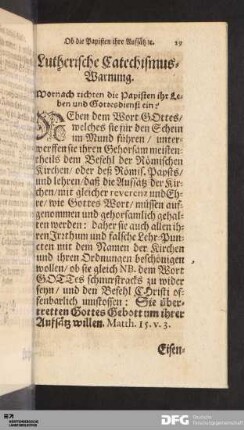 Ob die Papisten ihre Auffsätz ꝛc. 19
Lutherische Catechismus-
Warnung.
Wornach richten die Papisten ihr Le-
ben und Gottesdienst ein?
NEben dem Wort GOttes/
welches sie für den Schein
im Mund führen / unter-
werffen sie ihren Gehorsam meisten-
theils dem Befehl der Römischen
Kirchen / oder deß Römis. Papsts/
und lehren / daß die Auffsätz der Kir-
chen mit gleicher reverenz und Eh-
re / wie Gottes Wort / müssen auf-
genommen und gehorsamlich gehal-
ten werden: daher sie auch allen ih-
ren Irrthum und falsche Lehr-Pun-
cten mit dem Namen der Kirchen
und ihren Ordnungen beschönigen
wollen / ob sie gleich NB. dem Wort
GOTTes schnurstracks zu wider
seyn / und den Befehl CHristi of-
fenbarlich umstossen: Sie über-
tretten Gottes Gebott um ihrer
Auffsätz willen. Matth. 15. v. 3.
Eisen-
DFG Deutsche
Forschungsgemeinschaft